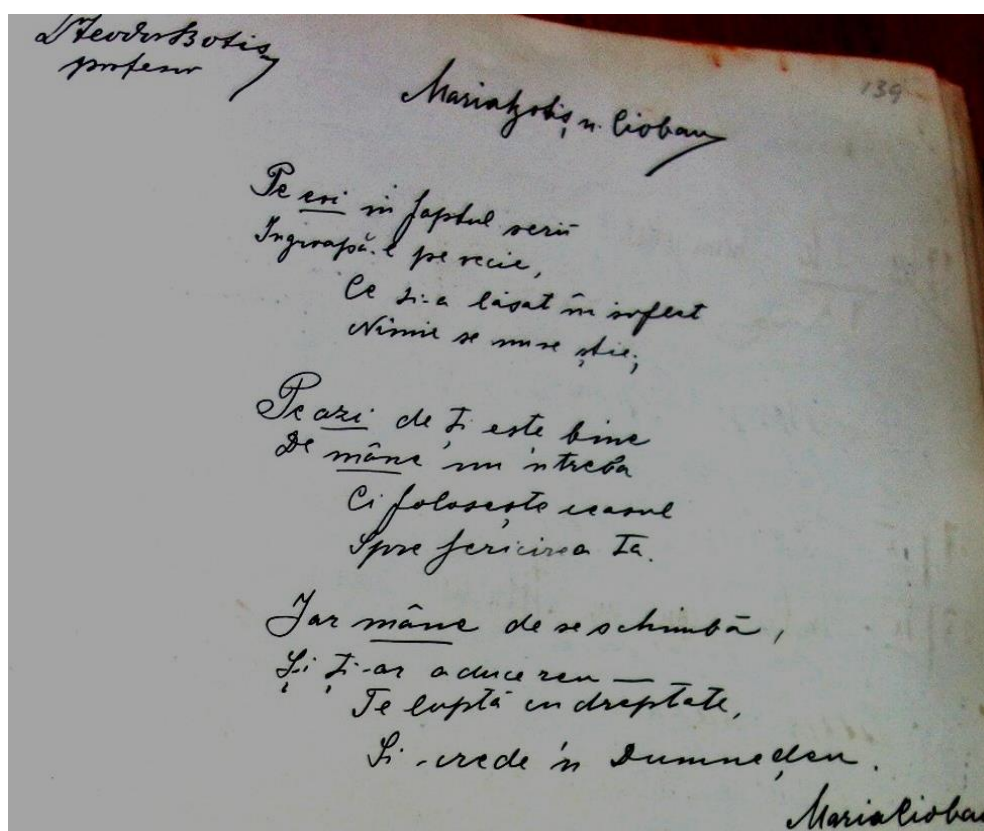 Dr Teodor Botiș
profesor
139
Maria Botiș n. Cioban
Pe eri in faptul serii
Ingroapă-l pe vecie,
Ce ți-a lăsat în suflet
Nimic se nu se știe;
Pe azi de ți este bine
De mâne nu 'ntreba
Ci folosește ceasul
Spre fericirea ta.
Jar mâne de se schimbă,
Și ți-ar aduce reu —
Te luptă cu dreptate,
Si crede 'n Dumnedeu.
Maria Cioban